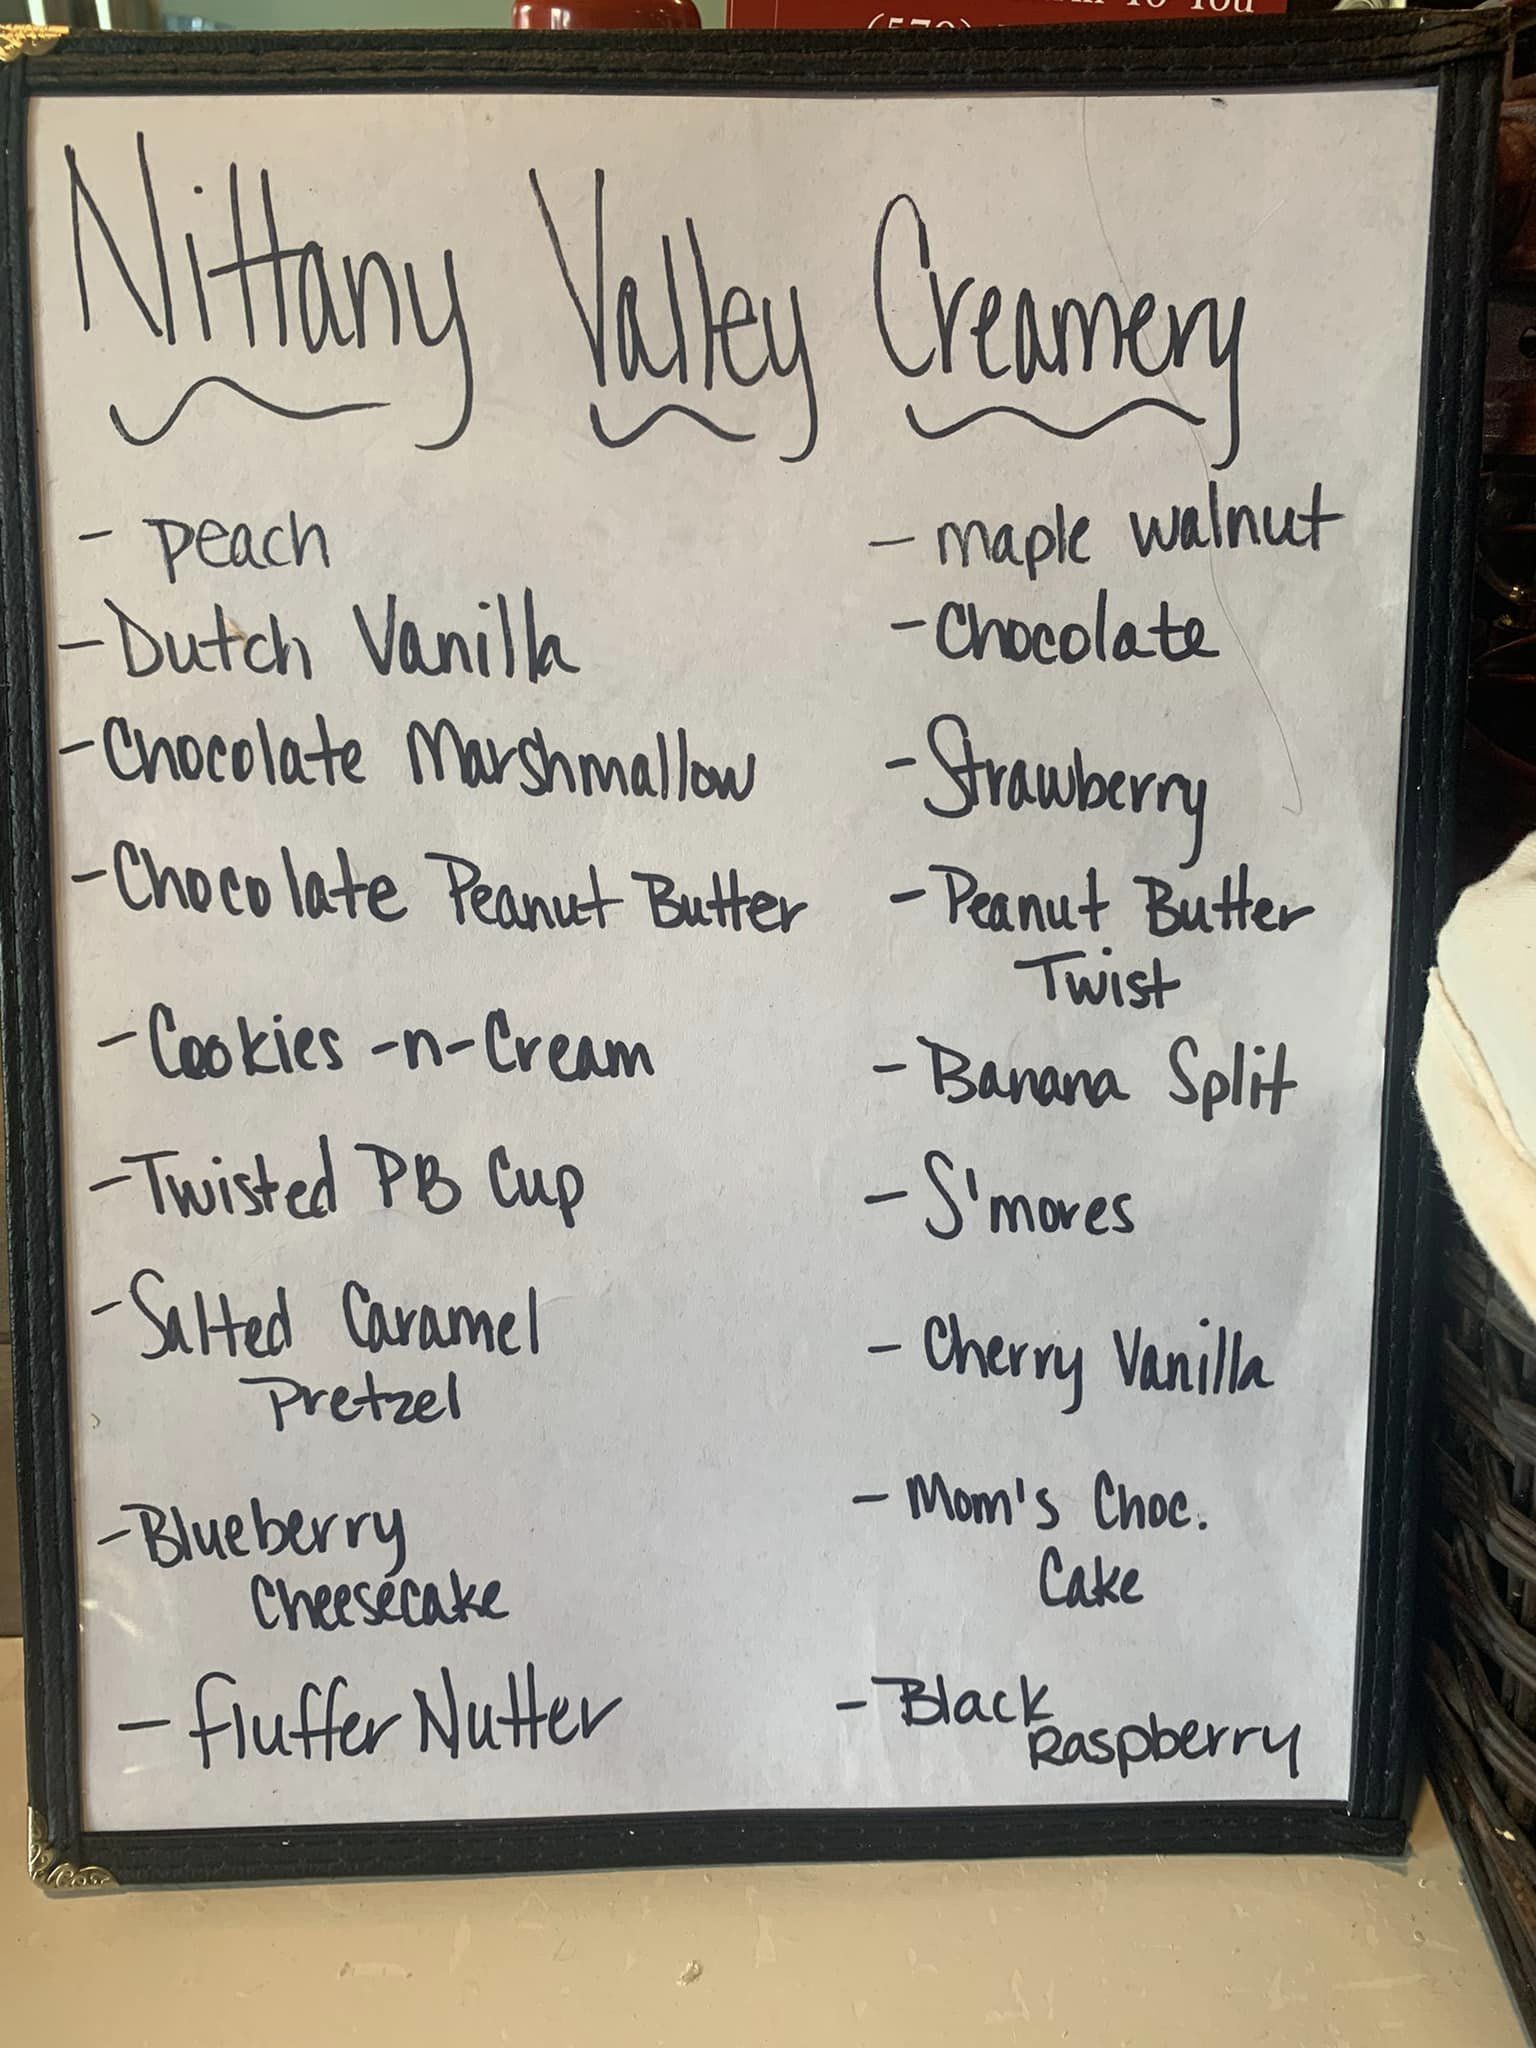 To You
(570)
Nittany Valley Creamery
- peach
- Dutch Vanilla
- Chocolate Marshmallow
- Chocolate Peanut Butter
- Cookies -n- Cream
- Twisted PB Cup
- Salted Caramel
Pretzel
- Blueberry
Cheesecake
- fluffer Nutter
- maple walnut
- Chocolate
- Strawberry
- Peanut Butter
Twist
- Banana Split
- S'mores
- Cherry Vanilla
- Mom's Choc.
Cake
- Black
Raspberry